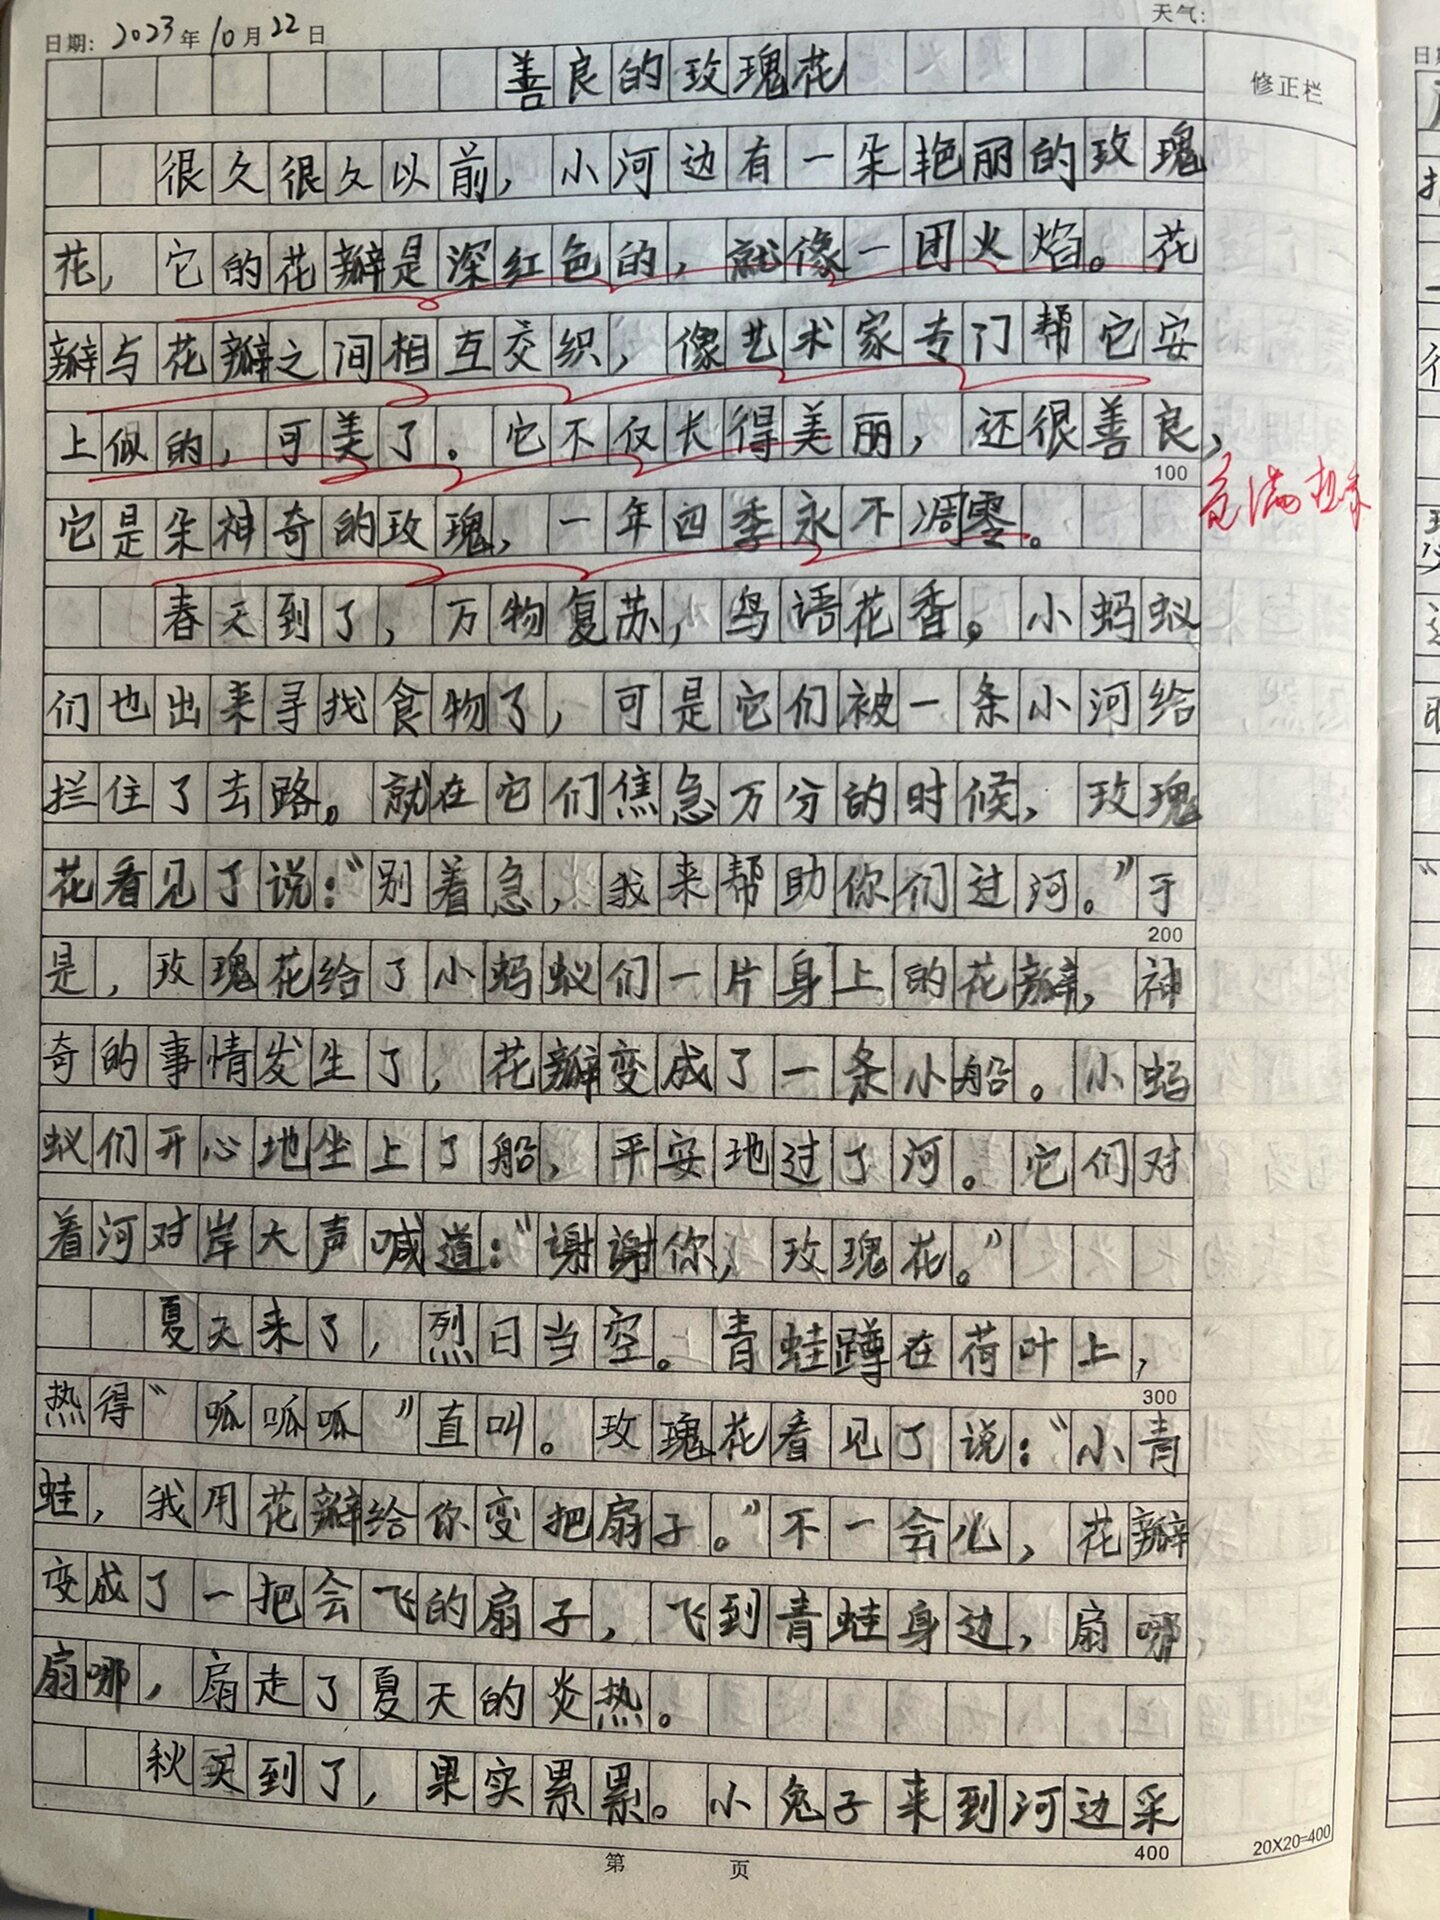 日期: 2023年10月22日
天气:
善良的玫瑰花
修正栏
很久很久以前，小河边有一朵艳丽的玫瑰
花，它的花瓣是深红色的，就像一团火焰。花
瓣与花瓣之间相互交织，像艺术家专门帮它安
上似的，可美了。它不仅长得美丽，还很善良，
100
它是朵神奇的玫瑰，一年四季永不凋零。
充满想象
春天到了，万物复苏，鸟语花香。小蚂蚁
们也出来寻找食物了，可是它们被一条小河给
拦住了去路。就在它们焦急万分的时候，玫瑰
花看见了说：“别着急，我来帮助你们过河。”于
200
是，玫瑰花给了小蚂蚁们一片身上的花瓣，神
奇的事情发生了，花瓣变成了一条小船。小蚂
蚁们开心地坐上了船，平安地过了河。它们对
着河对岸大声喊道：“谢谢你，玫瑰花。”
夏天来了，烈日当空。青蛙蹲在荷叶上，
300
热得“呱呱呱”直叫。玫瑰花看见了说：“小青
蛙，我用花瓣给你变把扇子。”不一会儿，花瓣
变成了一把会飞的扇子，飞到青蛙身边，扇哪，
扇哪，扇走了夏天的炎热。
秋天到了，果实累累。小兔子来到河边采
400
20X20=400
第 页